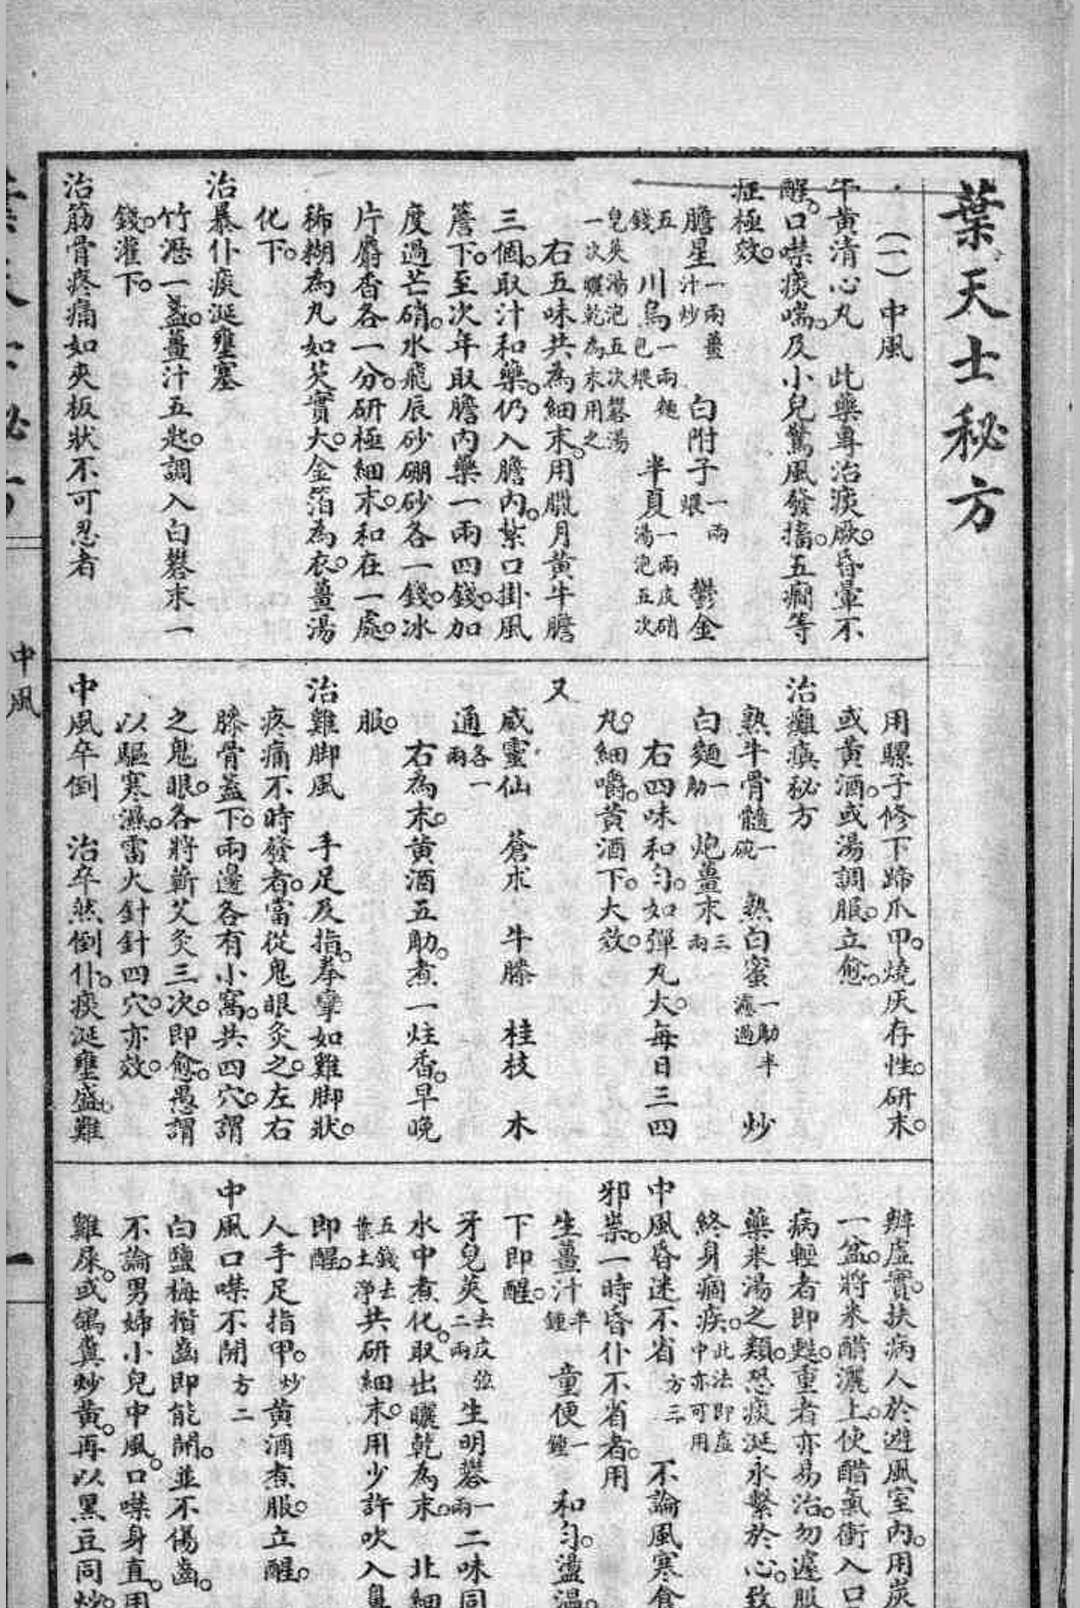 葉天士秘方
(一)中風
牛黃清心丸　此藥專治痰厥。昏暈不
醒。口噤痰喘。及小兒驚風發搐。五癇等
症極效。
膽星一兩薑汁炒　白附子一兩煨　鬱金
五錢　川烏一兩麵包煨　半夏一兩皮硝湯泡五次
皂莢湯泡五次礬湯一次曬乾為末用之
右五味共為細末。用臘月黃牛膽
三個。取汁和藥。仍入膽內。紮口掛風
簷下。至次年取膽內藥一兩四錢。加
度過芒硝。水飛辰砂硼砂各一錢。冰
片麝香各一分。研極細末。和在一處。
稀糊為丸如芡實大。金箔為衣。薑湯
化下。
治暴仆痰涎壅塞
竹瀝一盞。薑汁五匙。調入白礬末一
錢。灌下。
治筋骨疼痛如夾板狀不可忍者
用騾子修下蹄爪甲。燒灰存性。研末。
或黃酒。或湯調服。立愈。
治癱瘓秘方
熟牛骨髓一碗　熟白蜜一觔半濾過　炒
白麵一觔　炮薑末三兩
右四味和勻。如彈丸大。每日三四
丸。細嚼。黃酒下。大效。
又
威靈仙　蒼朮　牛膝　桂枝　木
通各一兩
右為末。黃酒五觔。煮一炷香。早晚
服。
治雞脚風　手足及指。拳攣如雞脚狀。
疼痛不時發者。當從鬼眼灸之。左右
膝骨蓋下。兩邊各有小窩。共四穴。謂
之鬼眼。各將蘄艾灸三次。即愈。愚謂
以驅寒濕。雷火針針四穴。亦效。
中風卒倒　治卒然倒仆。痰涎壅盛。難
辦虛實。扶病人於避風室內。用炭
一盆。將米醋灑上。使醋氣衝入口
病輕者即甦。重者亦易治。勿遽服
藥米湯之類。恐痰涎永繫於心。致
終身痼疾。此法即虛中亦可用
中風昏迷不省方三　不論風寒食
邪祟。一時昏仆不省者。用
生薑汁半鍾　童便一鍾　和勻。盪溫。
下即醒。
牙皂莢去皮弦二兩　生明礬一兩　二味同
水中煮化。取出曬乾為末。　北細
五錢去葉土淨　共研細末。用少許吹入鼻
即醒。
人手足指甲。炒　黃酒煮服。立醒。
中風口噤不開方二
白鹽梅楷齒即能開。並不傷齒。
不論男婦小兒中風。口噤身直。用
雞屎。或鴿糞炒黃。再以黑豆同炒。
中風
一